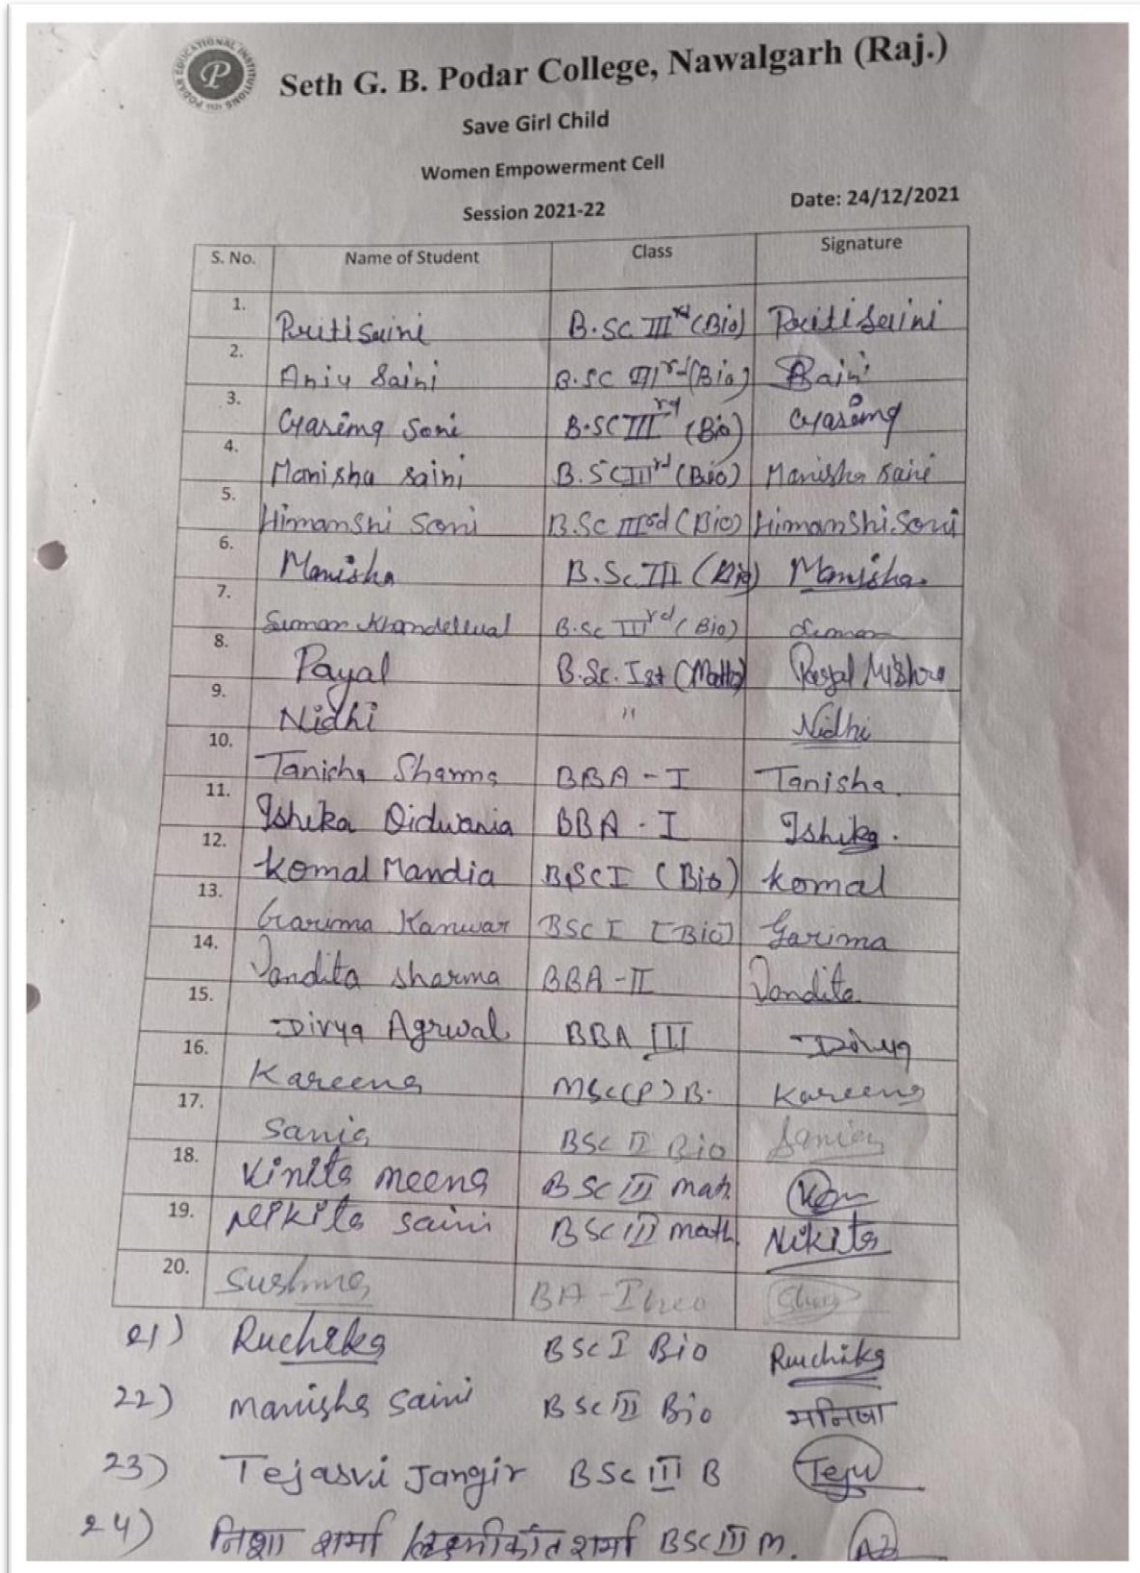 Seth G. B. Podar College, Nawalgarh (Raj.)
Save Girl Child
Women Empowerment Cell
Session 2021-22 Date: 24/12/2021
S. No. Name of Student Class Signature
1. Priti Saini B.Sc IIIrd (Bio) Priti Saini
2. Anju Saini B.SC IIIrd (Bio) Saini
3. Garima Soni B.SC IIIrd (Bio) Garima
4. Manisha Saini B.SC IIIrd (Bio) Manisha Saini
5. Himanshi Soni B.Sc IIIrd (Bio) Himanshi Soni
6. Manisha B.Sc III (Bio) Manisha.
7. Suman Khandelwal B.Sc IIIrd (Bio) Suman
8. Payal B.Sc. Ist (Math) Payal Mishra
9. Nidhi " Nidhi
10. Tanisha Sharma BBA - I Tanisha.
11. Ishika Didwania BBA - I Ishika.
12. Komal Mandia BSc I (Bio) Komal
13. Garima Kanwar BSc I [Bio] Garima
14. Vandita Sharma BBA - II Vandita
15. Divya Agrwal BBA III Divya
16. Kareena MSc (P) B. Kareena
17. Sania BSc II Bio Sania
18. Vinita meena BSc III mat.
19. Nikita Saini BSc III math. Nikita
20. Sushma BA - I
21) Ruchika BSc I Bio Ruchika
22) Manisha Saini BSc III Bio मनिषा
23) Tejasvi Jangir BSc III B Teju
24) निशा शर्मा / लक्ष्मीकांत शर्मा BSc III m.